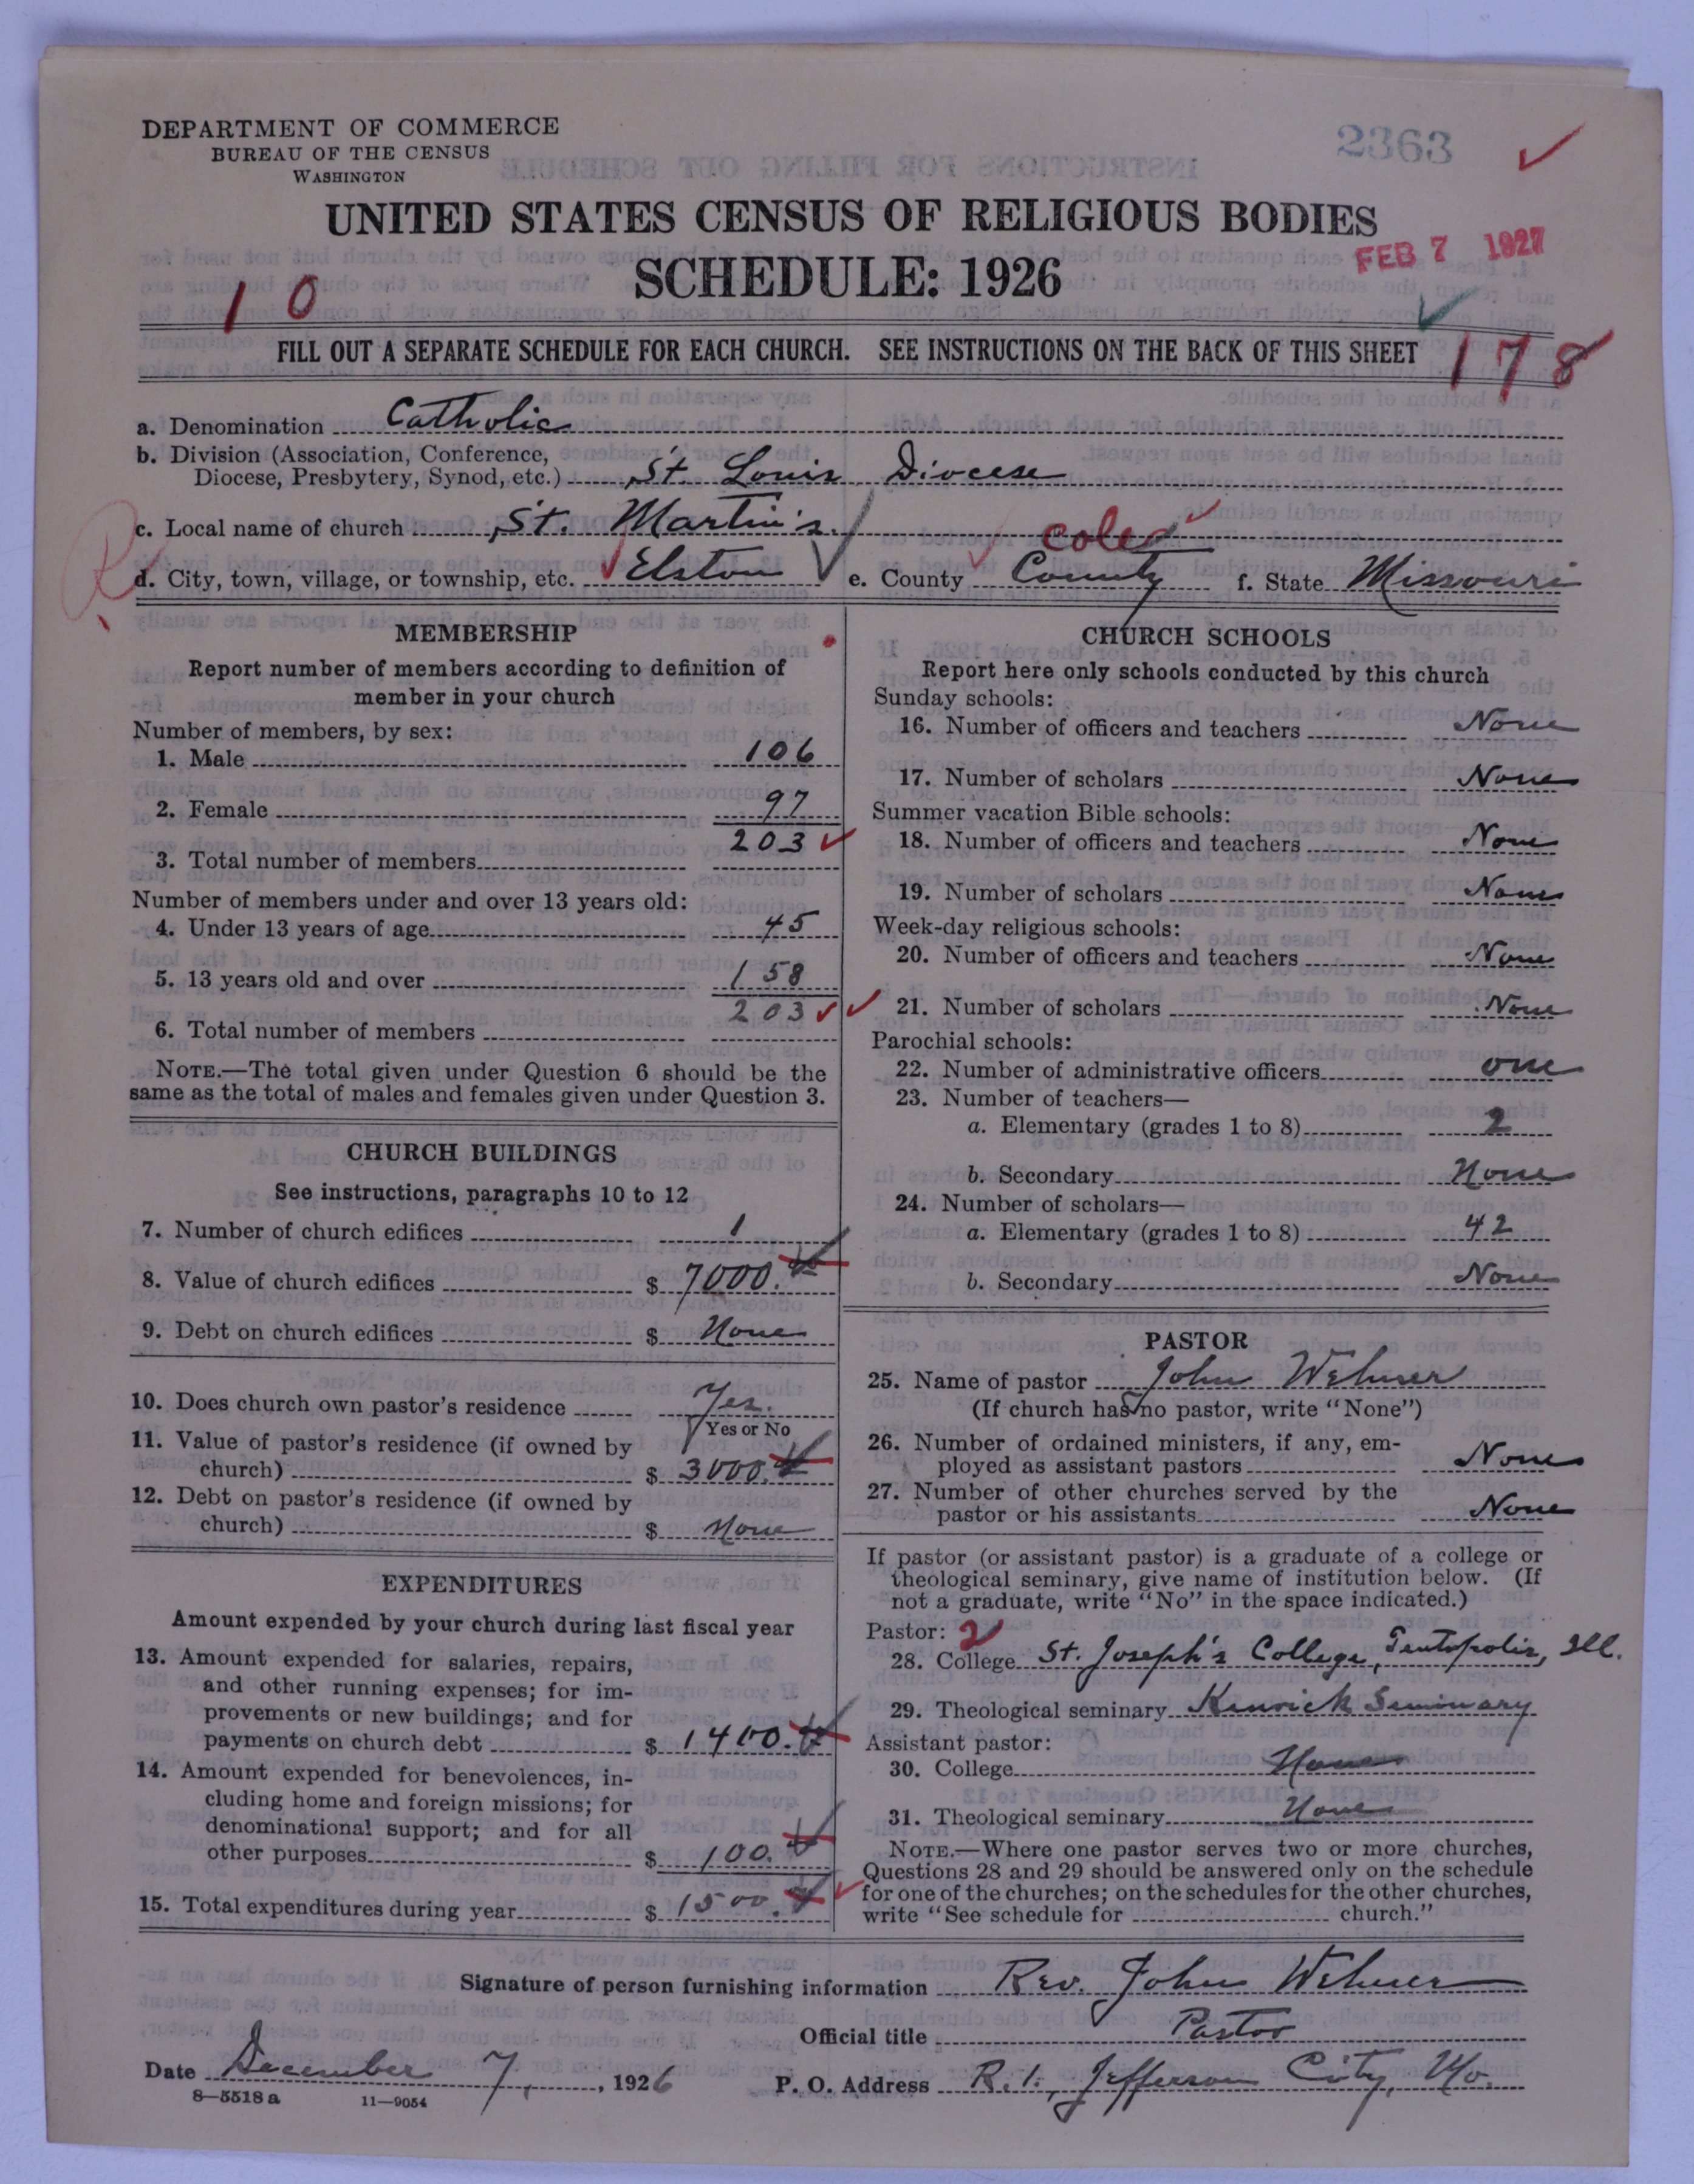 DEPARTMENT OF COMMERCE
BUREAU OF THE CENSUS
WASHINGTON
2363
UNITED STATES CENSUS OF RELIGIOUS BODIES
SCHEDULE: 1926
FEB 7 1927
10
FILL OUT A SEPARATE SCHEDULE FOR EACH CHURCH. SEE INSTRUCTIONS ON THE BACK OF THIS SHEET
178
a. Denomination Catholic
b. Division (Association, Conference,
Diocese, Presbytery, Synod, etc.) St. Louis Diocese
c. Local name of church St. Martin's
Cole
d. City, town, village, or township, etc. Elston e. County County f. State Missouri
MEMBERSHIP
Report number of members according to definition of
member in your church
Number of members, by sex:
1. Male 106
2. Female 97
203
3. Total number of members
Number of members under and over 13 years old:
4. Under 13 years of age 45
5. 13 years old and over 158
203
6. Total number of members
NOTE.—The total given under Question 6 should be the
same as the total of males and females given under Question 3.
CHURCH BUILDINGS
See instructions, paragraphs 10 to 12
7. Number of church edifices 1
8. Value of church edifices $ 7000.
9. Debt on church edifices $ None
10. Does church own pastor's residence Yes.
Yes or No
11. Value of pastor's residence (if owned by
church) $ 3000.
12. Debt on pastor's residence (if owned by
church) $ None
EXPENDITURES
Amount expended by your church during last fiscal year
13. Amount expended for salaries, repairs,
and other running expenses; for im-
provements or new buildings; and for
payments on church debt $ 1400.
14. Amount expended for benevolences, in-
cluding home and foreign missions; for
denominational support; and for all
other purposes $ 100.
15. Total expenditures during year $ 1500.
CHURCH SCHOOLS
Report here only schools conducted by this church
Sunday schools:
16. Number of officers and teachers None
17. Number of scholars None
Summer vacation Bible schools:
18. Number of officers and teachers None
19. Number of scholars None
Week-day religious schools:
20. Number of officers and teachers None
21. Number of scholars None
Parochial schools:
22. Number of administrative officers one
23. Number of teachers—
a. Elementary (grades 1 to 8) 2
b. Secondary None
24. Number of scholars—
a. Elementary (grades 1 to 8) 42
b. Secondary None
PASTOR
25. Name of pastor John Wehner
(If church has no pastor, write "None")
26. Number of ordained ministers, if any, em-
ployed as assistant pastors None
27. Number of other churches served by the
pastor or his assistants None
If pastor (or assistant pastor) is a graduate of a college or
theological seminary, give name of institution below. (If
not a graduate, write "No" in the space indicated.)
Pastor: 2
28. College St. Joseph's College, Teutopolis, Ill.
29. Theological seminary Kenrick Seminary
Assistant pastor:
30. College None
31. Theological seminary None
NOTE.—Where one pastor serves two or more churches,
Questions 28 and 29 should be answered only on the schedule
for one of the churches; on the schedules for the other churches,
write "See schedule for church."
Signature of person furnishing information Rev. John Wehner
Official title Pastor
Date December 7, 1926 P. O. Address R. 1., Jefferson City, Mo.
8—5518 a 11—9054